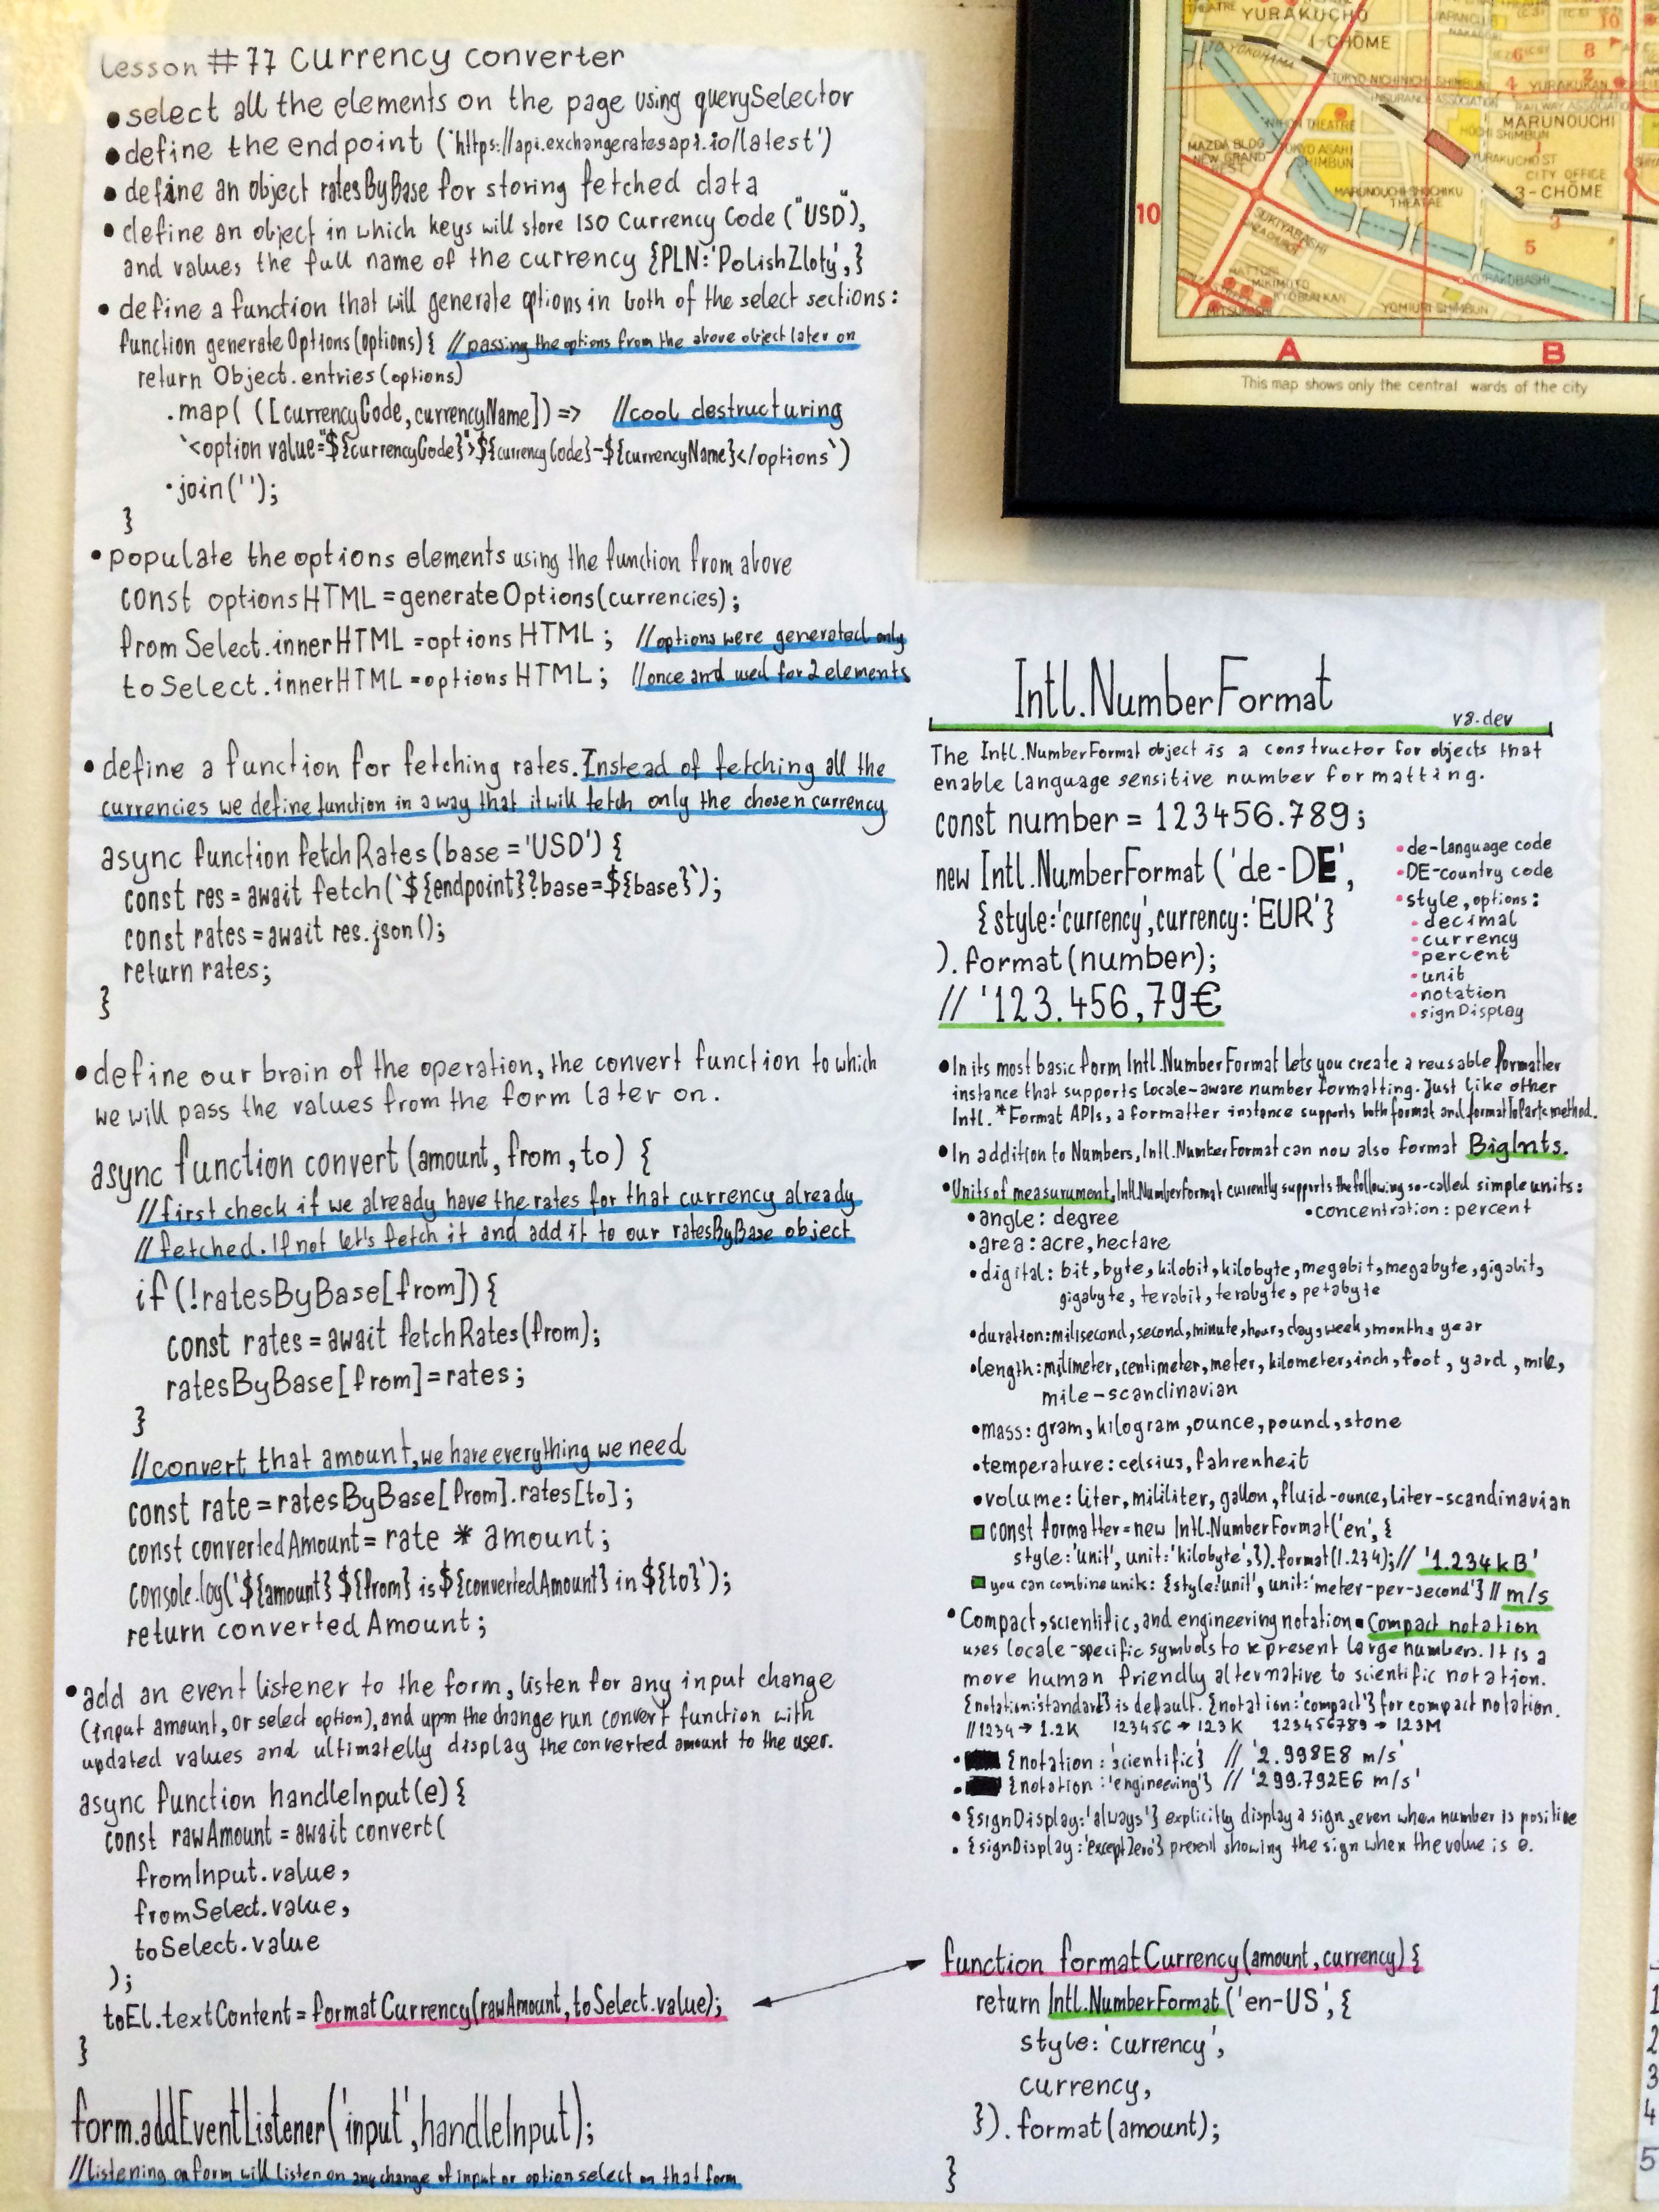 Lesson #77 Currency converter
• select all the elements on the page using querySelector
• define the endpoint ('https://api.exchangeratesapi.io/latest')
• define an object ratesByBase for storing fetched data
• define an object in which keys will store ISO Currency Code ("USD"),
and values the full name of the currency {PLN:'Polish Zloty',}
• define a function that will generate options in both of the select sections:
function generateOptions(options) { //passing the options from the above object later on
return Object.entries(options)
.map( ([currencyCode, currencyName]) => //cool destructuring
`<option value="${currencyCode}">${currencyCode}-${currencyName}</options`)
.join('');
}
• populate the options elements using the function from above
const optionsHTML = generateOptions(currencies);
fromSelect.innerHTML = optionsHTML; //options were generated only
toSelect.innerHTML = optionsHTML; //once and used for 2 elements
• define a function for fetching rates. Instead of fetching all the
currencies we define function in a way that it will fetch only the chosen currency
async function fetchRates(base = 'USD') {
const res = await fetch(`${endpoint}?base=${base}`);
const rates = await res.json();
return rates;
}
• define our brain of the operation, the convert function to which
we will pass the values from the form later on.
async function convert (amount, from, to) {
//first check if we already have the rates for that currency already
//fetched. If not let's fetch it and add it to our ratesByBase object
if (!ratesByBase[from]) {
const rates = await fetchRates(from);
ratesByBase[from] = rates;
}
//convert that amount, we have everything we need
const rate = ratesByBase[from].rates[to];
const convertedAmount = rate * amount;
console.log(`${amount} ${from} is ${convertedAmount} in ${to}`);
return convertedAmount;
• add an event listener to the form, listen for any input change
(input amount, or select option), and upon the change run convert function with
updated values and ultimatelly display the converted amount to the user.
async function handleInput(e) {
const rawAmount = await convert(
fromInput.value,
fromSelect.value,
toSelect.value
);
toEl.textContent = formatCurrency(rawAmount, toSelect.value);
}
form.addEventListener('input', handleInput);
//listening on form will listen on any change of input or option select on that form
Intl.NumberFormat
v8.dev
The Intl.NumberFormat object is a constructor for objects that
enable language sensitive number formatting.
const number = 123456.789;
new Intl.NumberFormat('de-DE',
{style:'currency', currency:'EUR'}
).format(number);
// '123.456,79€
• de-language code
• DE-country code
• style, options:
• decimal
• currency
• percent
• unit
• notation
• signDisplay
• In its most basic form Intl.NumberFormat lets you create a reusable formatter
instance that supports locale-aware number formatting. Just like other
Intl.*Format APIs, a formatter instance supports both format and formatToParts method.
• In addition to Numbers, Intl.NumberFormat can now also format BigInts.
• Units of measurument, Intl.NumberFormat currently supports the following so-called simple units:
• angle: degree
• concentration: percent
• area: acre, hectare
• digital: bit, byte, kilobit, kilobyte, megabit, megabyte, gigabit,
gigabyte, terabit, terabyte, petabyte
• duration: milisecond, second, minute, hour, day, week, month, year
• length: milimeter, centimeter, meter, kilometer, inch, foot, yard, mile,
mile-scandinavian
• mass: gram, kilogram, ounce, pound, stone
• temperature: celsius, fahrenheit
• volume: liter, mililiter, gallon, fluid-ounce, liter-scandinavian
const formatter = new Intl.NumberFormat('en', {
style:'unit', unit:'kilobyte',}).format(1.234); // '1.234kB'
you can combine units: {style:'unit', unit:'meter-per-second'} // m/s
• Compact, scientific, and engineering notation. Compact notation
uses locale-specific symbols to represent large numbers. It is a
more human friendly alternative to scientific notation.
{notation:'standard'} is default. {notation:'compact'} for compact notation.
//1234 → 1.2K 123456 → 123K 123456789 → 123M
• {notation:'scientific'} // '2.998E8 m/s'
• {notation:'engineering'} // '299.792E6 m/s'
• {signDisplay:'always'} explicitly display a sign, even when number is positive
• {signDisplay:'exceptZero'} prevent showing the sign when the value is 0.
function formatCurrency(amount, currency) {
return Intl.NumberFormat('en-US', {
style: 'currency',
currency,
}).format(amount);
}
YURAKUCHO
1-CHOME
TO YOKOHAMA
TOKYO NICHINICHI SHIMBUN
YURAKUKAN
INSURANCE ASSOCIATION
RAILWAY ASSOCIATION
MARUNOUCHI
HOCHI SHIMBUN
MAZDA BLDG
NEW GRAND
YURAKUCHO ST
CITY OFFICE
3-CHOME
MARUNOUCHI SHOCHIKU
THEATRE
SUKIYABASHI
HATTORI
MIKIMOTO
KYOBUNKAN
YOMIURI SHIMBUN
10
A
B
This map shows only the central wards of the city
1
2
3
4
5